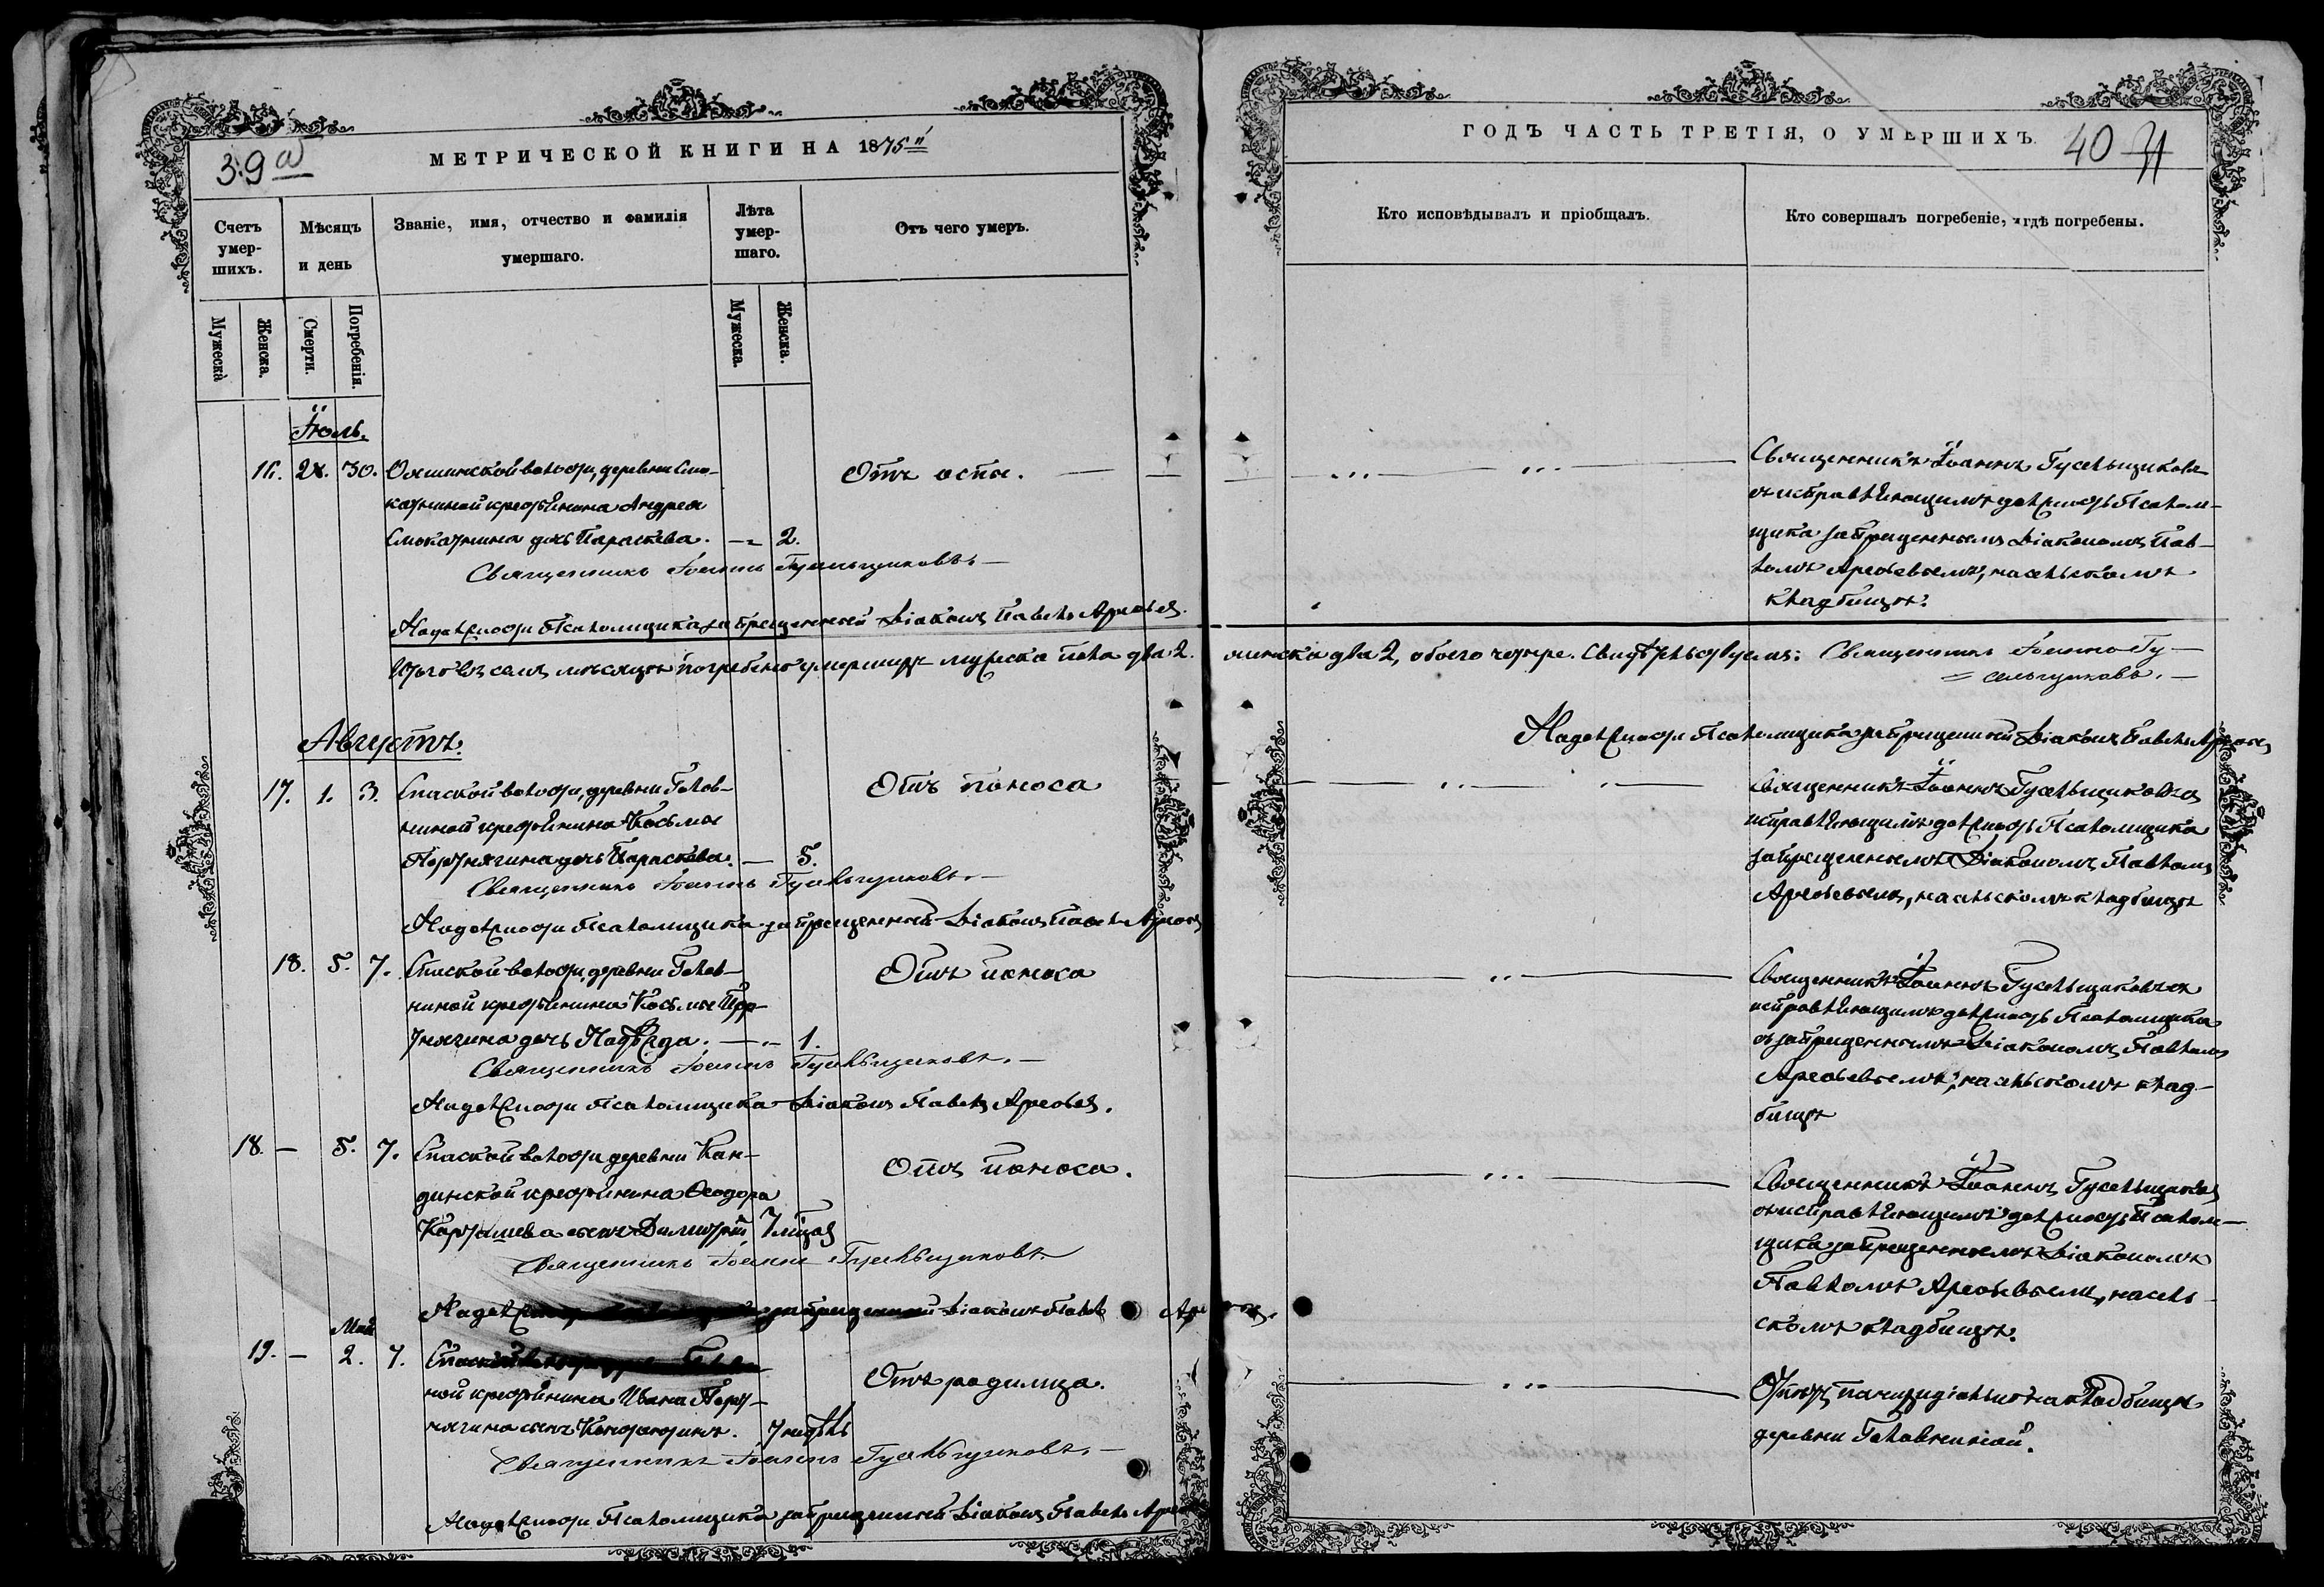 39
МЕТРИЧЕСКОЙ КНИГИ НА 1875
Счетъ умер-шихъ.
Мѣсяцъ и день
Званіе, имя, отчество и фамилія умершаго.
Лѣта умер-шаго.
Отъ чего умеръ.
Мужеска
Женска.
Смерти.
Погребенія.
Мужеска.
Женска.
Іюль.
30. Ояшинской волости, деревни Смо-
котиной крестьянина Андрея
Смокотина дочь Параскева. 2.
Отъ оспы.
Священникъ Іоаннъ Гусельщиковъ
На должности Псаломщика запрещенный Діаконъ Павелъ
Итого въ семъ мѣсяцѣ погребено умершихъ мужеска пола два 2.
Августъ.
17. 1. 3. Спаской волости, деревни Голов-
ниной крестьянина Косьмы
дочь Параскева. 5.
Отъ поноса
Священникъ Іоаннъ Гусельщиковъ.
На должности Псаломщика запрещенный Діаконъ Павелъ
18. 5. 7. Спаской волости, деревни Голов-
ниной крестьянина Косьмы
дочь Надежда. 1.
Отъ поноса
Священникъ Іоаннъ Гусельщиковъ.
На должности Псаломщика Діаконъ Павелъ
18. — 5. 7. Спаской волости деревни Кан-
динской крестьянина Ѳеодора
Карташева сынъ Димитрій 7 мѣсяц
Отъ поноса.
Священникъ Іоаннъ Гусельщиковъ.
запрещенный Діаконъ Павелъ
Май
19. — 2. 7. Спаской
ной крестьянина Ивана
сынъ Константинъ. 7 недѣль
Отъ родимца.
Священникъ Іоаннъ Гусельщиковъ.
На должности Псаломщика запрещенный Діаконъ Павелъ
ГОДЪ ЧАСТЬ ТРЕТІЯ, О УМЕРШИХЪ.
40
Кто исповѣдывалъ и пріобщалъ.
Кто совершалъ погребеніе, и гдѣ погребены.
Священникъ Іоаннъ Гусельщиковъ
съ исправляющимъ должность Псалом-
щика запрещеннымъ Діакономъ Пав-
ломъ на сельскомъ
кладбищѣ.
женска два 2, обоего четыре. Свидѣтельствуемъ: Священникъ Іоаннъ Гу-
сельщиковъ.
На должности Псаломщика запрещенный Діаконъ Павелъ
Священникъ Іоаннъ Гусельщиковъ съ
исправляющимъ должность Псаломщика
запрещеннымъ Діакономъ Павломъ
на сельскомъ кладбищѣ
Священникъ Іоаннъ Гусельщиковъ съ
исправляющимъ должность Псаломщика
запрещеннымъ Діакономъ Павломъ
на сельскомъ клад-
бищѣ
Священникъ Іоаннъ Гусельщиковъ
съ исправляющимъ должность Псалом-
щика запрещеннымъ Діакономъ
Павломъ на сель-
скомъ кладбищѣ.
Отпѣтъ на кладбищѣ
деревни Головниной.